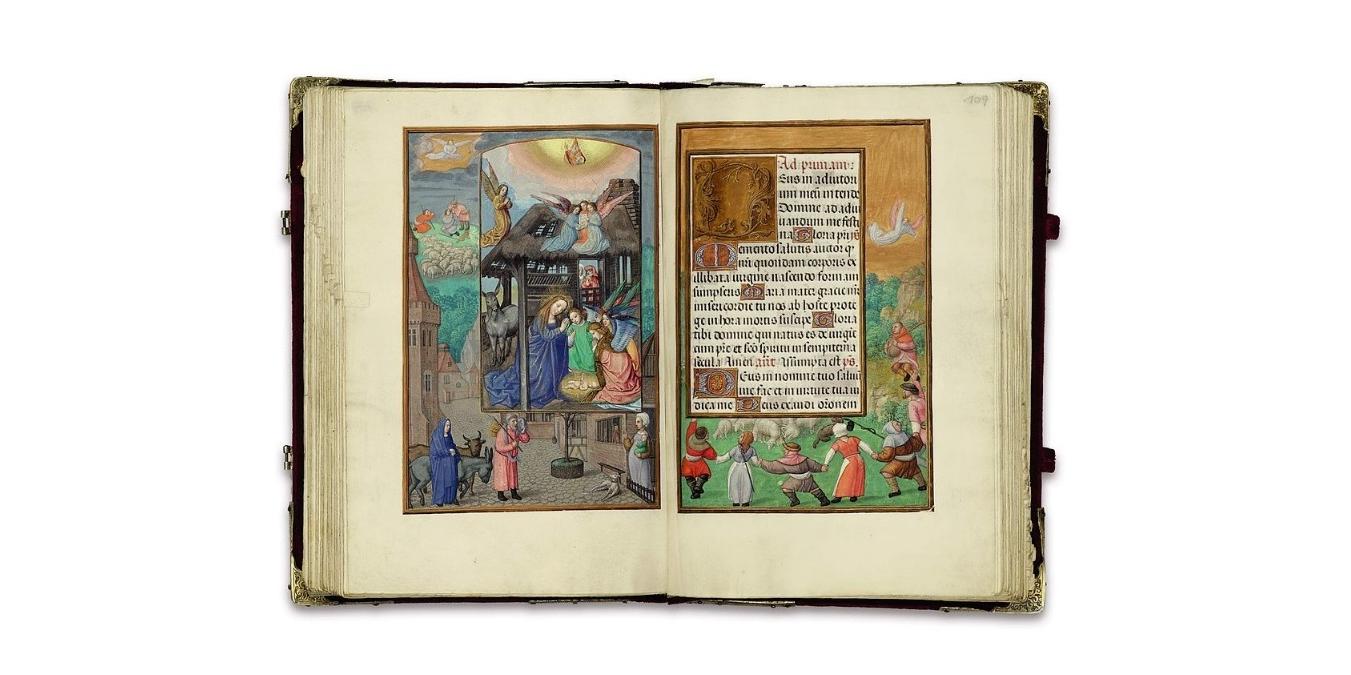 109
Ad primam:
Eus in adiutori
um meū intende
Domine ad adiu
uandum me festi
na Gloria pr̄i
Memento salutis auctor
nr̄i quondam corporis ex
illibata uirgine nascendo formam
sumpseris Maria mater gracie
misericordie tu nos ab hoste prote
ge in hora mortis suscipe Gloria
tibi domine qui natus es de uirgīe
cum pr̄e et sc̄o spiritu in sempiterna
secula Amen an̄t Assumpta est ps̄.
Deus in nomine tuo saluū
me fac et in uirtute tua iu
dica me Deus exaudi or̄onem